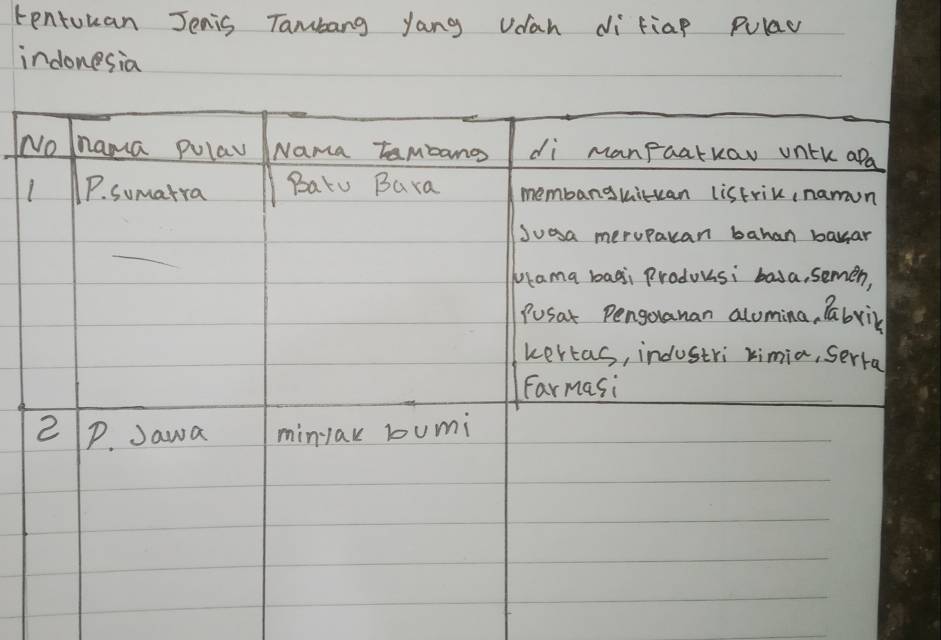 tentukan Jenis Tambang yang Udah di tiap Pulau
indonesia
No nama Pulau Nama Tambang di manfaatkau untk apa
1 P. Sumatra Batu Bara membangkitkan listrik, namun
Juga merupakan bahan bakar
utama bagi Produksi baja, semen,
Pusat Pengolahan alumina, Pabrik
kertas, industri kimia, serta
Farmasi
2 P. Jawa minyak bumi